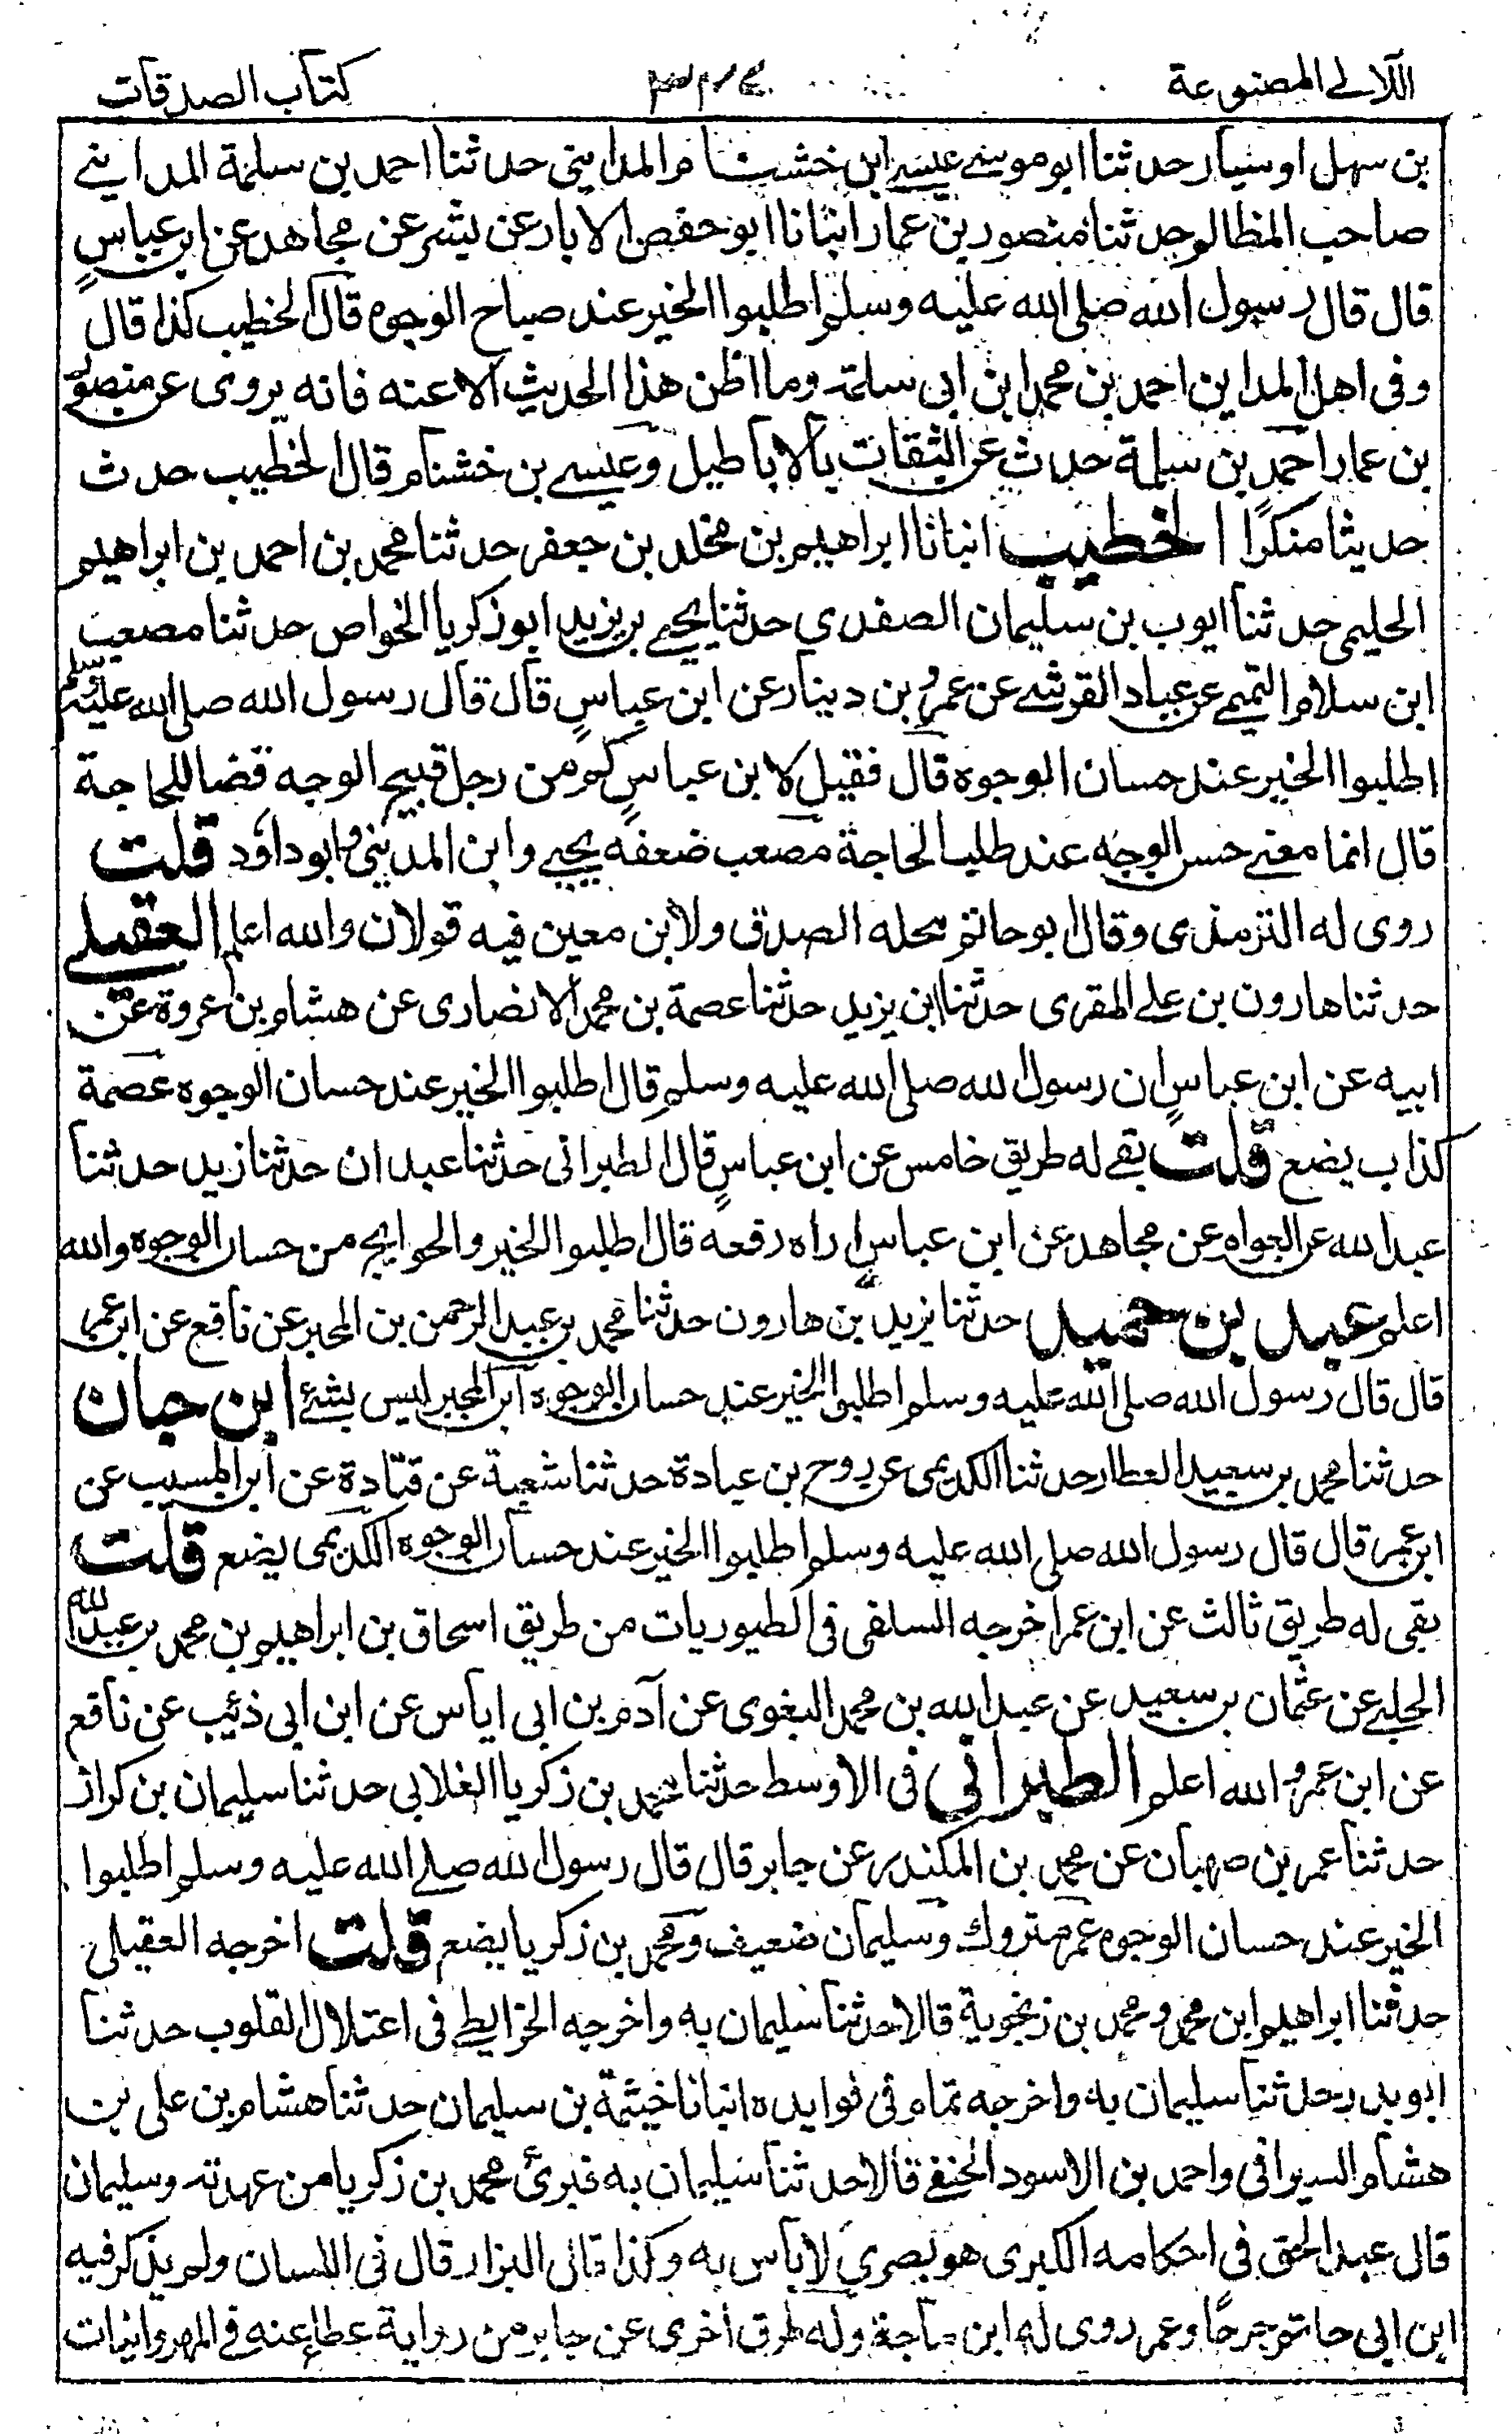 اللآلى المصنوعة
كتاب الصدقات
بن سهل اوسيار حدثنا ابو موسے عيسے ابن خشنام المدايني حدثنا احمد بن سلمة المداينے
صاحب المظالم حدثنا منصور بن عمار انبانا ابو حفص الابار عن ليث عن مجاهد عن ابن عباسٍ
قال قال رسول الله صلى الله عليه وسلم اطلبوا الخير عند صباح الوجوه قال الخطيب كذا قال
وفى اهل المداين احمد بن محمد ابن ابى سلمة وما اظن هذا الحديث الا عنه فانه يروى عن منصور
بن عمار احمد بن سلمة حدث عن الثقات بالاباطيل وعيسے بن خشنام قال الخطيب حدث
حديثا منكرًا الخطيب انبانا ابراهيم بن مخلد بن جعفر حدثنا محمد بن احمد بن ابراهيم
الحليمى حدثنا ايوب بن سليمان الصفدي حدثنا يحيے بن يزيد ابو زكريا الخواص حدثنا مصعب
ابن سلام التميمے عن عباد القرشے عن عمرو بن دينار عن ابن عباسٍ قال قال رسول الله صلى الله عليه وسلم
اطلبوا الخير عند حسان الوجوه قال فقيل لابن عباسٍ كم من رجل قبيح الوجه قضا للحاجة
قال انما معنے حسن الوجه عند طلب الحاجة مصعب ضعفه يحيے وابن المديني وابو داؤد قلت
روى له الترمذى وقال ابو حاتم محله الصدق ولابن معين فيه قولان والله اعلم العقيلے
حدثنا هارون بن علے المقرى حدثنا ابن يزيد حدثنا عصمة بن محمد الانصارى عن هشام بن عروة عن
ابيه عن ابن عباسٍ ان رسول لله صلى الله عليه وسلم قال اطلبوا الخير عند حسان الوجوه عصمة
كذاب يضع قلت بقے له طريق خامس عن ابن عباسٍ قال الطبرانى حدثنا عبدان حدثنا زيد حدثنا
عبد الله عن العوام عن مجاهد عن ابن عباس اراه رفعه قال اطلبوا الخير والحوايج من حسان الوجوه والله
اعلم عبد بن حميد حدثنا يزيد بن هارون حدثنا محمد بن عبد الرحمن بن المجبر عن نافع عن ابن عمر
قال قال رسول الله صلى الله عليه وسلم اطلبوا الخير عند حسان الوجوه ابن المجبر ليس بشئ ابن حبان
حدثنا محمد بن سعيد العطار حدثنا الكديمى عن روح بن عبادة حدثنا شعبة عن قتادة عن ابن المسيب عن
ابن عمر قال قال رسول الله صلى الله عليه وسلم اطلبوا الخير عند حسان الوجوه الكديمى يضع قلت
بقى له طريق ثالث عن ابن عمر اخرجه السلفى فى الطيوريات من طريق اسحاق بن ابراهيم بن محمد بن عبد الله
الجلے عن عثمان بن سعيد عن عبد الله بن محمد البغوى عن آدم بن ابى اياس عن ابن ابى ذئيب عن نافع
عن ابن عمر والله اعلم الطبرانى فى الاوسط حدثنا محمد بن زكريا الغلابى حدثنا سليمان بن كراز
حدثنا عمر بن صهبان عن محمد بن المكندر عن جابر قال قال رسول الله صلے الله عليه وسلم اطلبوا
الخير عند حسان الوجوه عمر متروك وسليمان ضعيف ومحمد بن زكريا يضع قلت اخرجه العقيلى
حدثنا ابراهيم ابن محمد ومحمد بن زنجوية قالا حدثنا سليمان به واخرجه الخرايطے فى اعتلال القلوب حدثنا
ابو بدر حدثنا سليمان به واخرجه تمام فى فوايده انبانا خيثمة بن سليمان حدثنا هشام بن على بن
هشام السيرافى واحمد بن الاسود الحنفے قالا حدثنا سليمان به فبرئ محمد بن زكريا من عهدته وسليمان
قال عبد الحق فى احكامه الكبرى هو بصري لا باس به وكذا قال البزار قال فى اللسان ولم يذكر فيه
ابن ابى حاتم جرحًا وعمر روى له ابن ماجة وله طرق اخرى عن جابر من رواية عطاء عنه فے المهروانيات